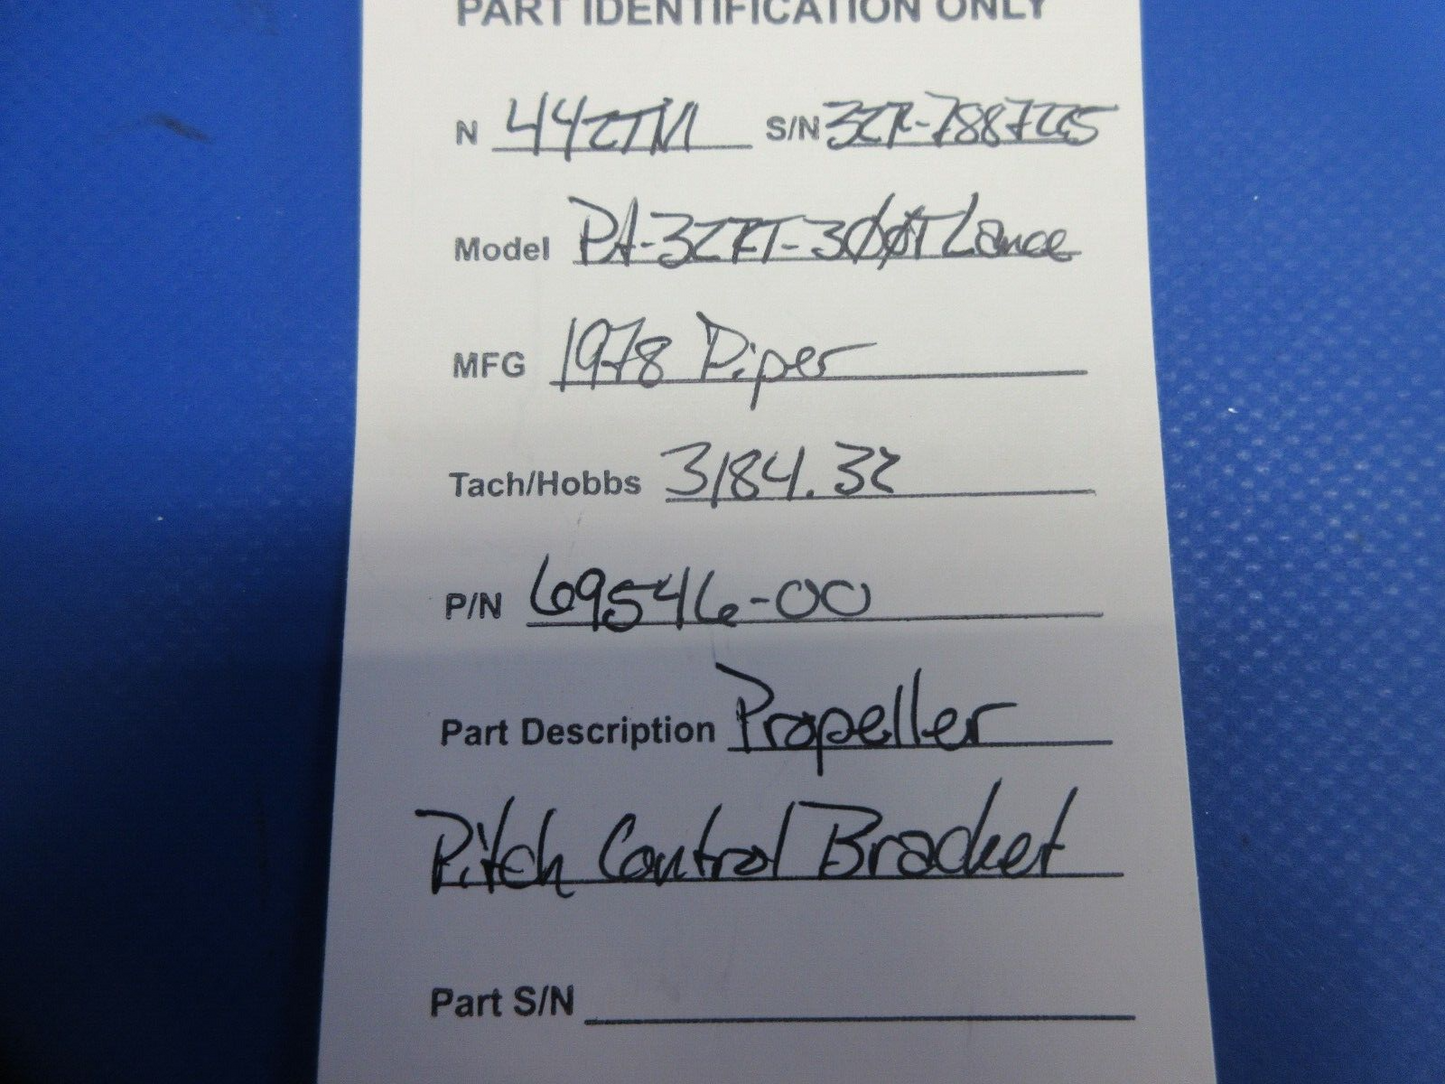 PART IDENTIFICATION ONLY
N 442TM S/N 32R-7887265
Model PA-32RT-300T Lance
MFG 1978 Piper
Tach/Hobbs 3184.32
P/N 69546-00
Part Description Propeller
Pitch Control Bracket
Part S/N